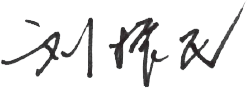 刘振民